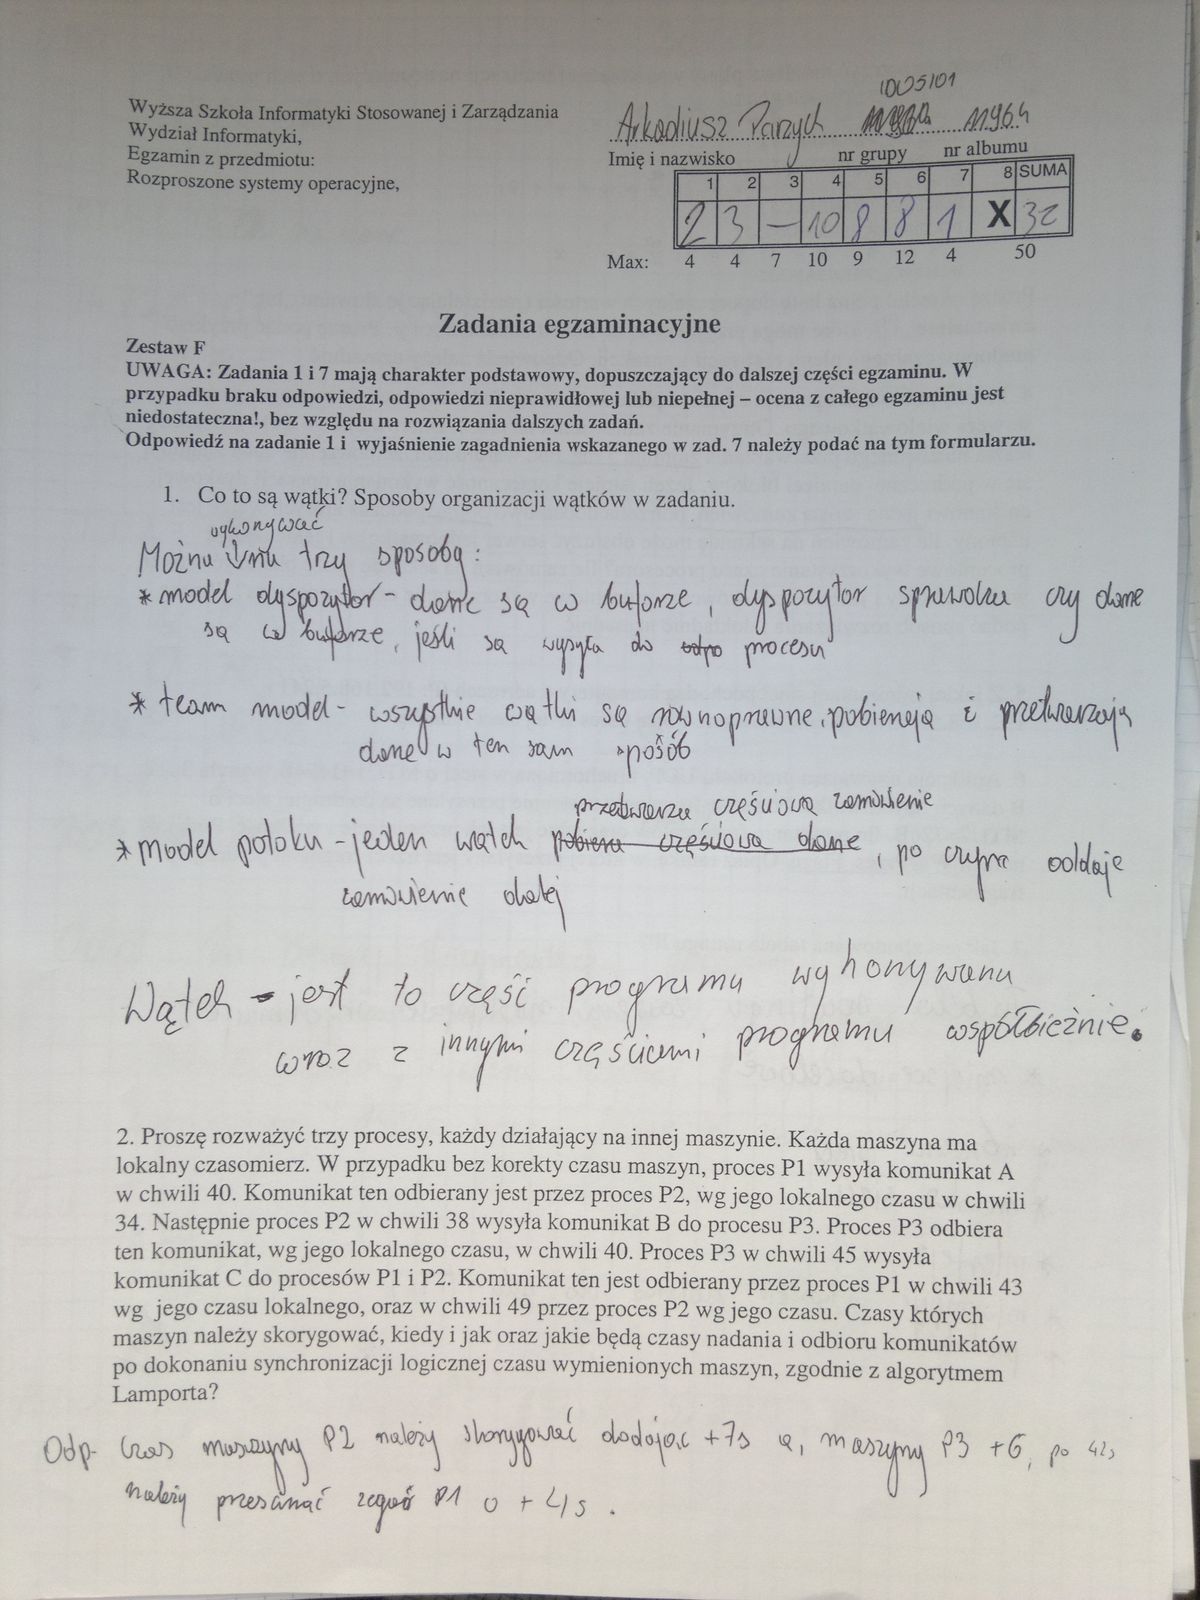 IDW5101
Wyższa Szkoła Informatyki Stosowanej i Zarządzania
Wydział Informatyki,
Egzamin z przedmiotu:
Rozproszone systemy operacyjne,
Arkadiusz Parzych 11964
Imię i nazwisko nr grupy nr albumu
1 2 3 4 5 6 7 8 SUMA
2 3 – 10 8 8 1 X 32
Max: 4 4 7 10 9 12 4 50
Zadania egzaminacyjne
Zestaw F
UWAGA: Zadania 1 i 7 mają charakter podstawowy, dopuszczający do dalszej części egzaminu. W
przypadku braku odpowiedzi, odpowiedzi nieprawidłowej lub niepełnej – ocena z całego egzaminu jest
niedostateczna!, bez względu na rozwiązania dalszych zadań.
Odpowiedź na zadanie 1 i wyjaśnienie zagadnienia wskazanego w zad. 7 należy podać na tym formularzu.
1. Co to są wątki? Sposoby organizacji wątków w zadaniu.
wykonywać
Można na trzy sposoby :
* model dyspozytor - dane są w buforze , dyspozytor sprawdza czy dane
są w buforze , jeśli są wysyła do procesu
* team model - wszystkie wątki są równoprawne , pobierają i przetwarzają
dane w ten sam sposób
przetwarza częściowa zamówienie
* model potoku - jeden wątek pobiera częściowa dane , po czym oddaje
zamówienie dalej
Wątek - jest to część programu wykonywana
wraz z innymi częściami programu współbieżnie.
2. Proszę rozważyć trzy procesy, każdy działający na innej maszynie. Każda maszyna ma
lokalny czasomierz. W przypadku bez korekty czasu maszyn, proces P1 wysyła komunikat A
w chwili 40. Komunikat ten odbierany jest przez proces P2, wg jego lokalnego czasu w chwili
34. Następnie proces P2 w chwili 38 wysyła komunikat B do procesu P3. Proces P3 odbiera
ten komunikat, wg jego lokalnego czasu, w chwili 40. Proces P3 w chwili 45 wysyła
komunikat C do procesów P1 i P2. Komunikat ten jest odbierany przez proces P1 w chwili 43
wg jego czasu lokalnego, oraz w chwili 49 przez proces P2 wg jego czasu. Czasy których
maszyn należy skorygować, kiedy i jak oraz jakie będą czasy nadania i odbioru komunikatów
po dokonaniu synchronizacji logicznej czasu wymienionych maszyn, zgodnie z algorytmem
Lamporta?
Odp- Czas maszyny P2 należy skorygować dodając +7s a, maszyny P3 +6, po 42s
należy przesunąć zegar P1 o + 4s .